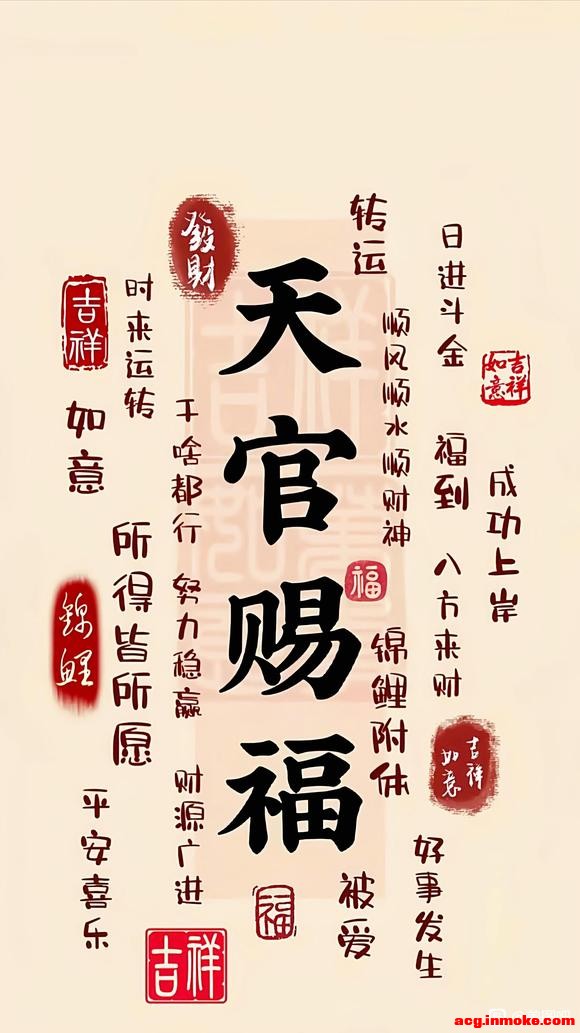 天官赐福
發財
转运
日进斗金
吉祥
时来运转
顺风顺水顺财神
吉祥如意
如意
干啥都行
福到
成功上岸
所得皆所愿
福
八方来财
锦鲤
努力稳赢
锦鲤附体
吉祥如意
平安喜乐
财源广进
好事发生
被爱
福
吉祥
acg.inmoke.com